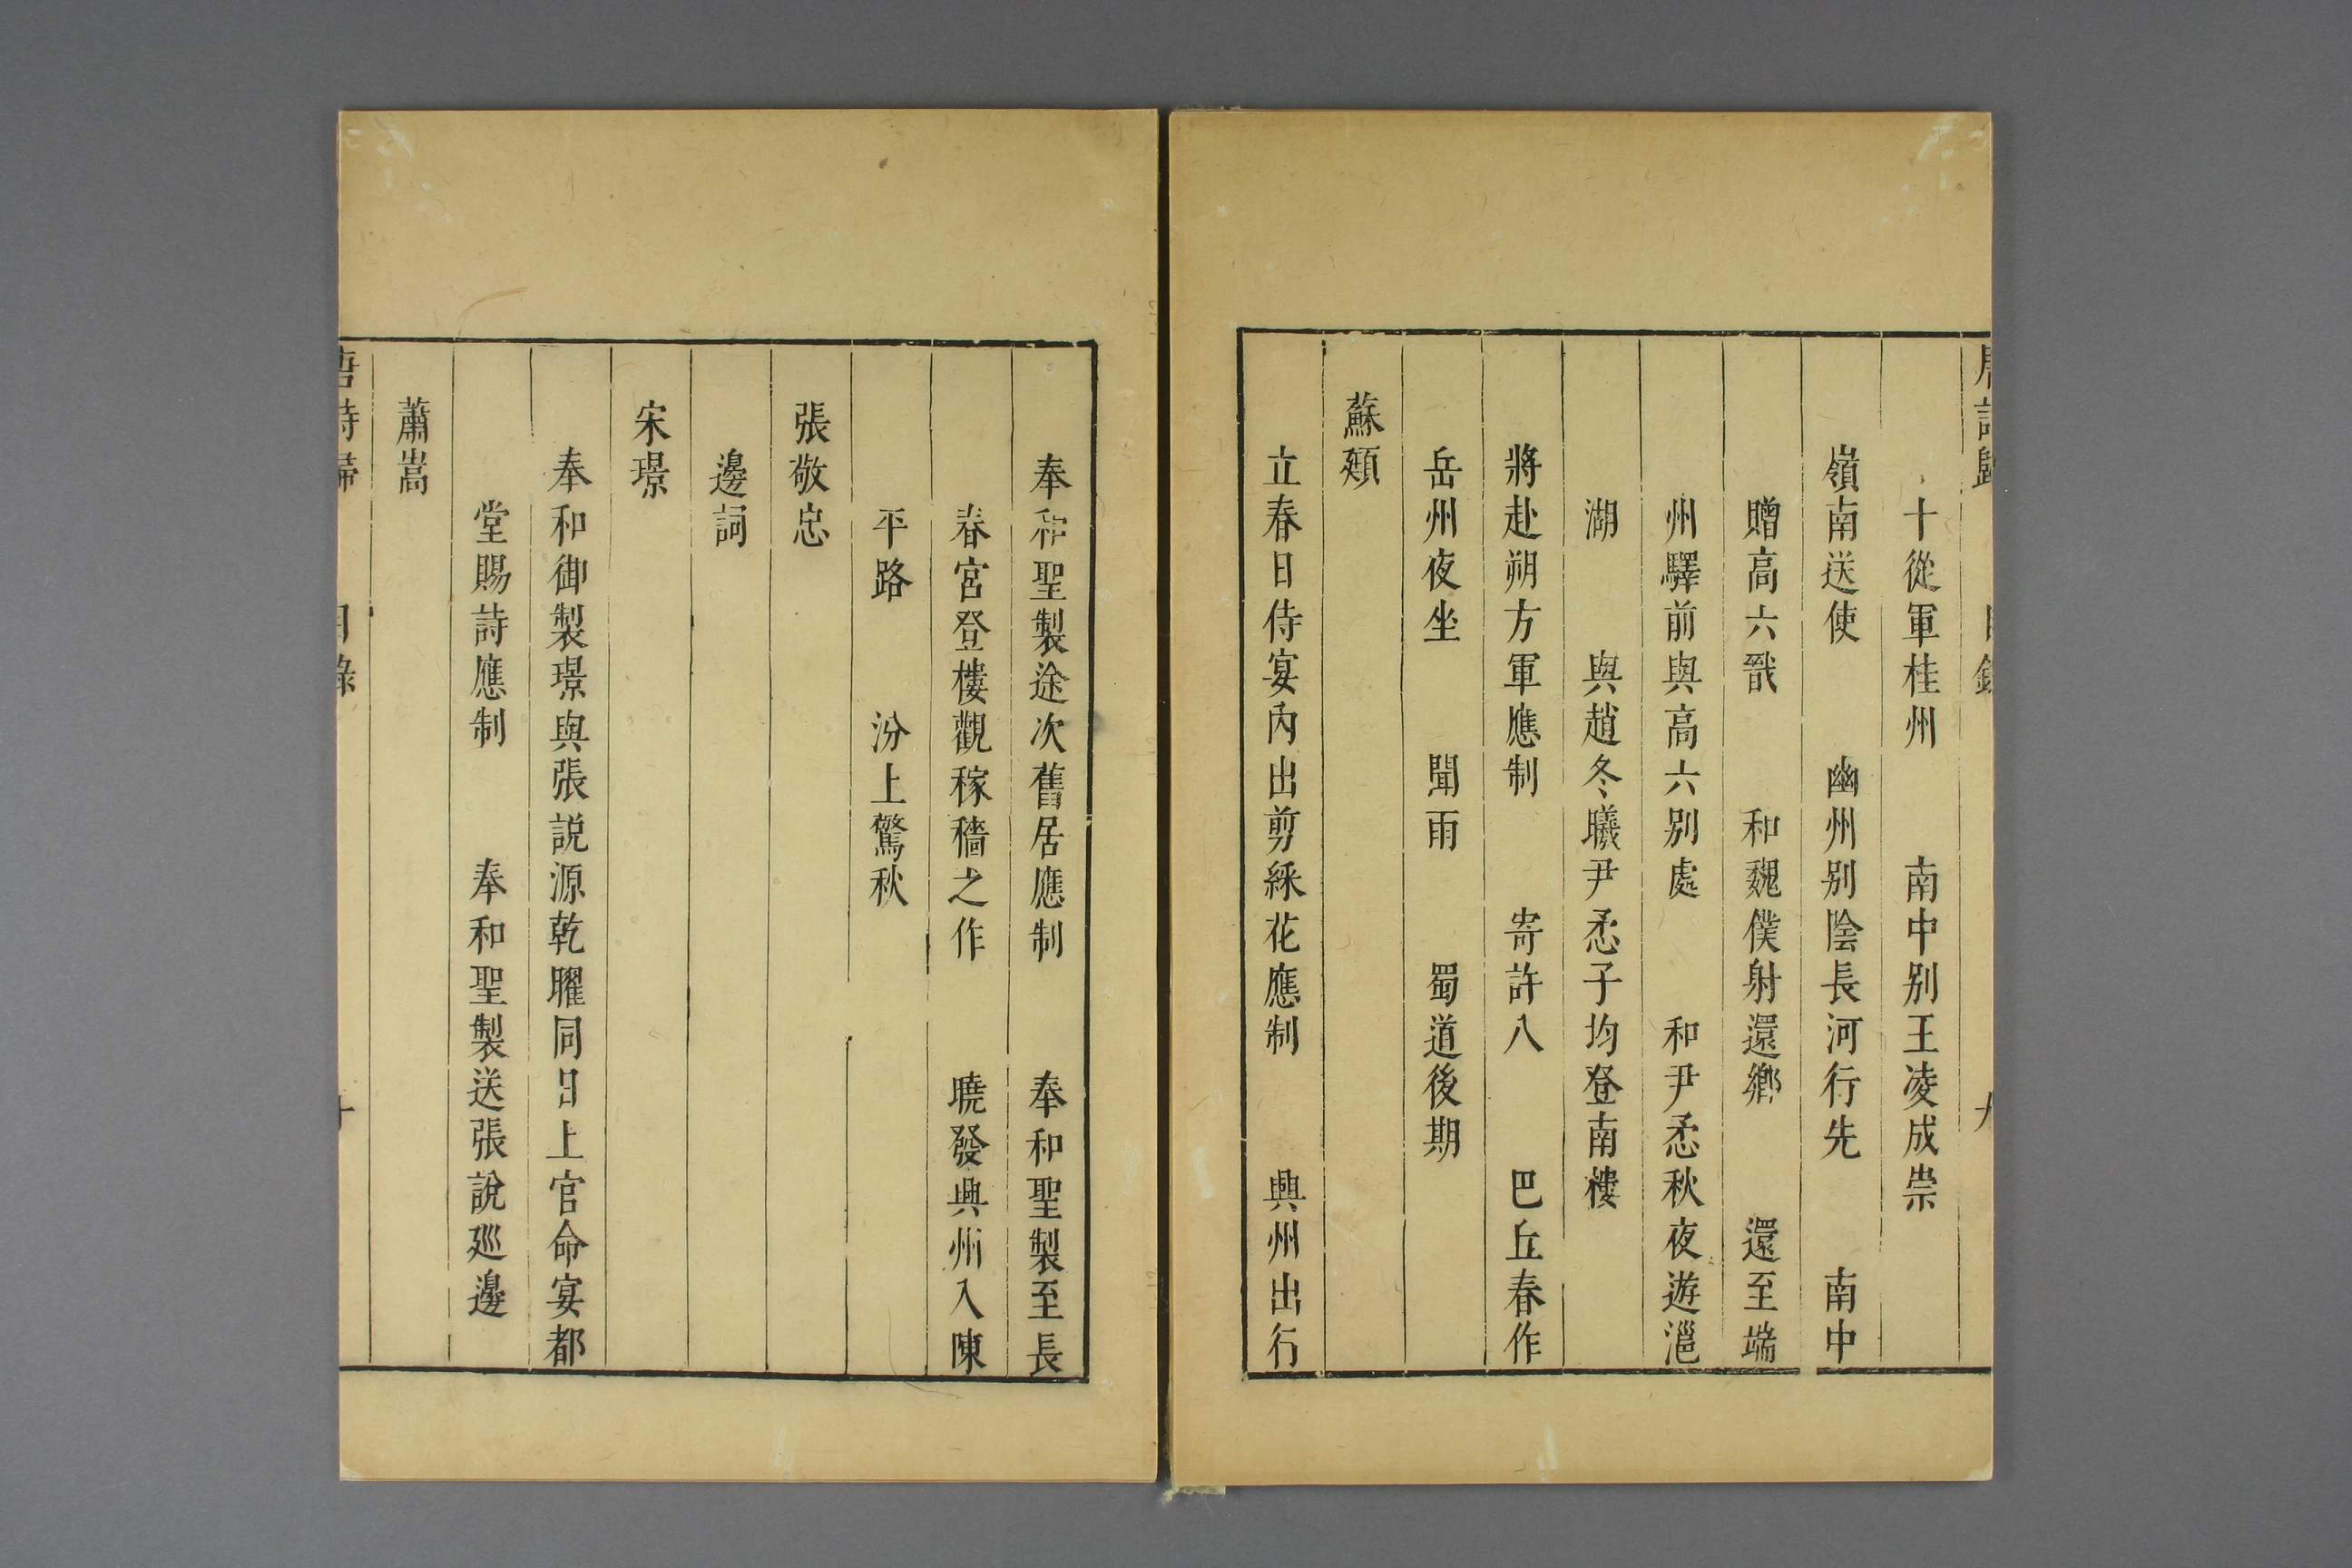 唐詩歸 目錄 九
十從軍桂州 南中別王凌成崇
嶺南送使 幽州別陰長河行先 南中
贈高六戩 和魏僕射還鄉 還至端
州驛前與高六別處 和尹懋秋夜遊㴩
湖 與趙冬曦尹懋子均登南樓
將赴朔方軍應制 寄許八 巴丘春作
岳州夜坐 聞雨 蜀道後期
蘇頲
立春日侍宴內出剪綵花應制 興州出行
奉和聖製途次舊居應制 奉和聖製至長
春宮登樓觀稼穡之作 曉發興州入陳
平路 汾上驚秋
張敬忠
邊詞
宋璟
奉和御製璟與張說源乾曜同日上官命宴都
堂賜詩應制 奉和聖製送張說廵邊
蕭嵩
唐詩歸 目錄 十